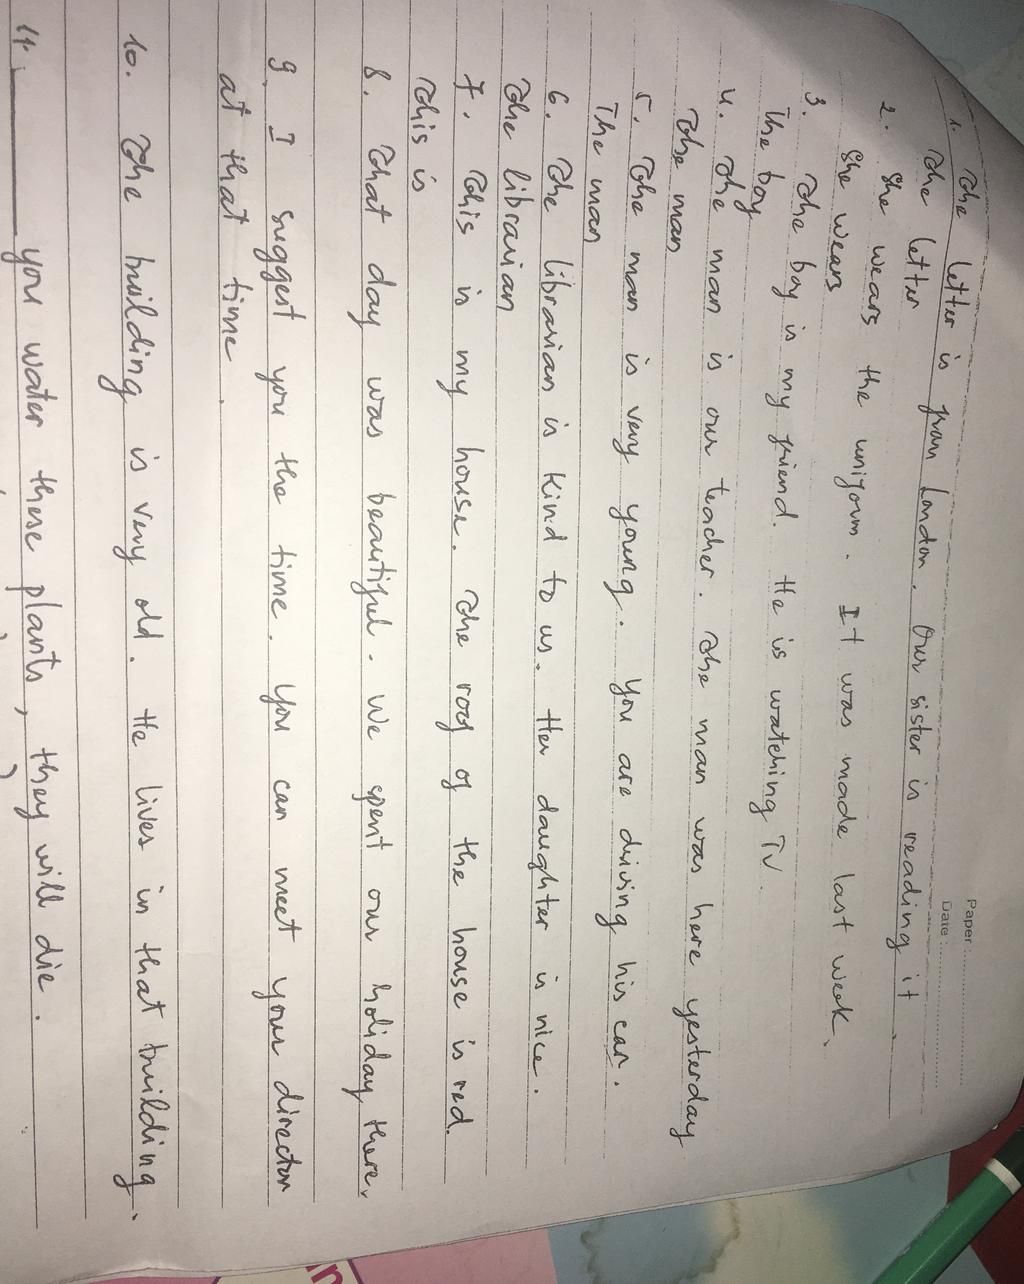 Paper : ....................
Date : ....................
1. The letter is from London. Our sister is reading it.
The letter
2. She wears the uniform. It was made last week.
She wears
3. The boy is my friend. He is watching TV.
The boy
4. The man is our teacher. The man was here yesterday
The man
5. The man is very young. You are driving his car.
The man
6. The librarian is kind to us. Her daughter is nice.
The librarian
7. This is my house. The roof of the house is red.
This is
8. That day was beautiful. We spent our holiday there.
9. I suggest you the time. You can meet your director
at that time.
10. The building is very old. He lives in that building.
11. ________ you water these plants, they will die.